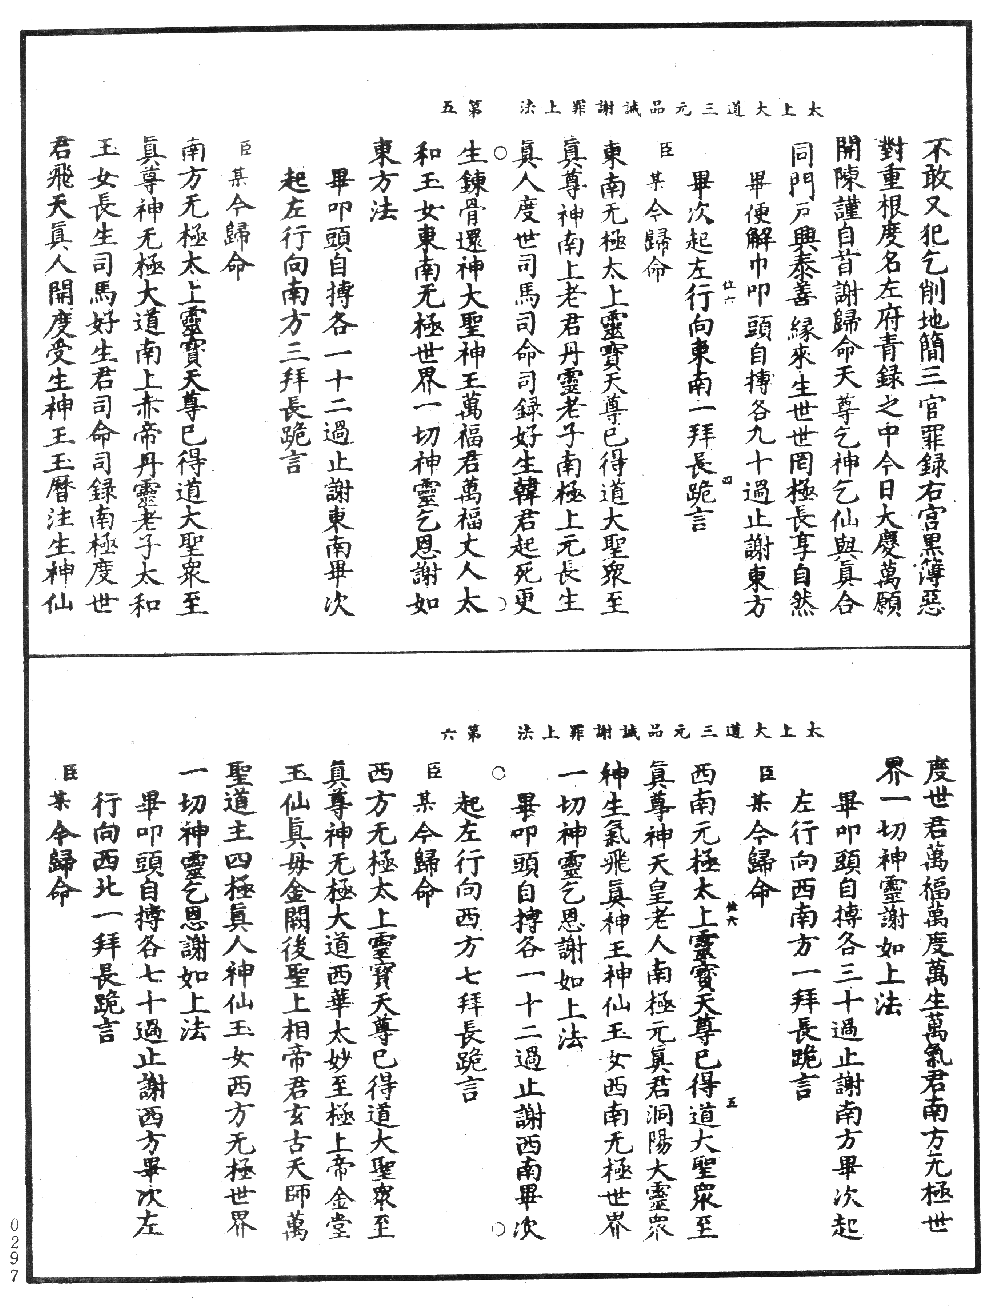 太上大道三元品誡謝罪上法　第五
不敢又犯乞削地簡三官罪録右宫黑簿惡
對重根度名左府青録之中今日大慶萬願
開陳謹自首謝歸命天尊乞神乞仙與真合
同門戸興泰善縁來生世世罔極長享自然
畢便解巾叩頭自搏各九十過止謝東方
畢次起左行向東南一拜長跪言
位六
四
臣某今歸命
東南无極太上靈寶天尊已得道大聖衆至
真尊神南上老君丹靈老子南極上元長生
真人度世司馬司命司録好生韓君起死更
生鍊骨還神大聖神王萬福君萬福丈人太
和玉女東南无極世界一切神靈乞恩謝如
東方法
畢叩頭自搏各一十二過止謝東南畢次
起左行向南方三拜長跪言
臣某今歸命
南方无極太上靈寶天尊已得道大聖衆至
真尊神无極大道南上赤帝丹靈老子太和
玉女長生司馬好生君司命司録南極度世
君飛天真人開度受生神王玉曆注生神仙
太上大道三元品誡謝罪上法　第六
度世君萬福萬度萬生萬氣君南方无極世
界一切神靈謝如上法
畢叩頭自搏各三十過止謝南方畢次起
左行向西南方一拜長跪言
臣某今歸命
位六
五
西南元極太上靈寶天尊已得道大聖衆至
真尊神天皇老人南極元真君洞陽大靈衆
神生氣飛真神王神仙玉女西南无極世界
一切神靈乞恩謝如上法
畢叩頭自搏各一十二過止謝西南畢次
起左行向西方七拜長跪言
臣某今歸命
西方无極太上靈寶天尊已得道大聖衆至
真尊神无極大道西華太妙至極上帝金堂
玉仙真母金闕後聖上相帝君玄古天師萬
聖道主四極真人神仙玉女西方无極世界
一切神靈乞恩謝如上法
畢叩頭自搏各七十過止謝西方畢次左
行向西北一拜長跪言
臣某今歸命
0297